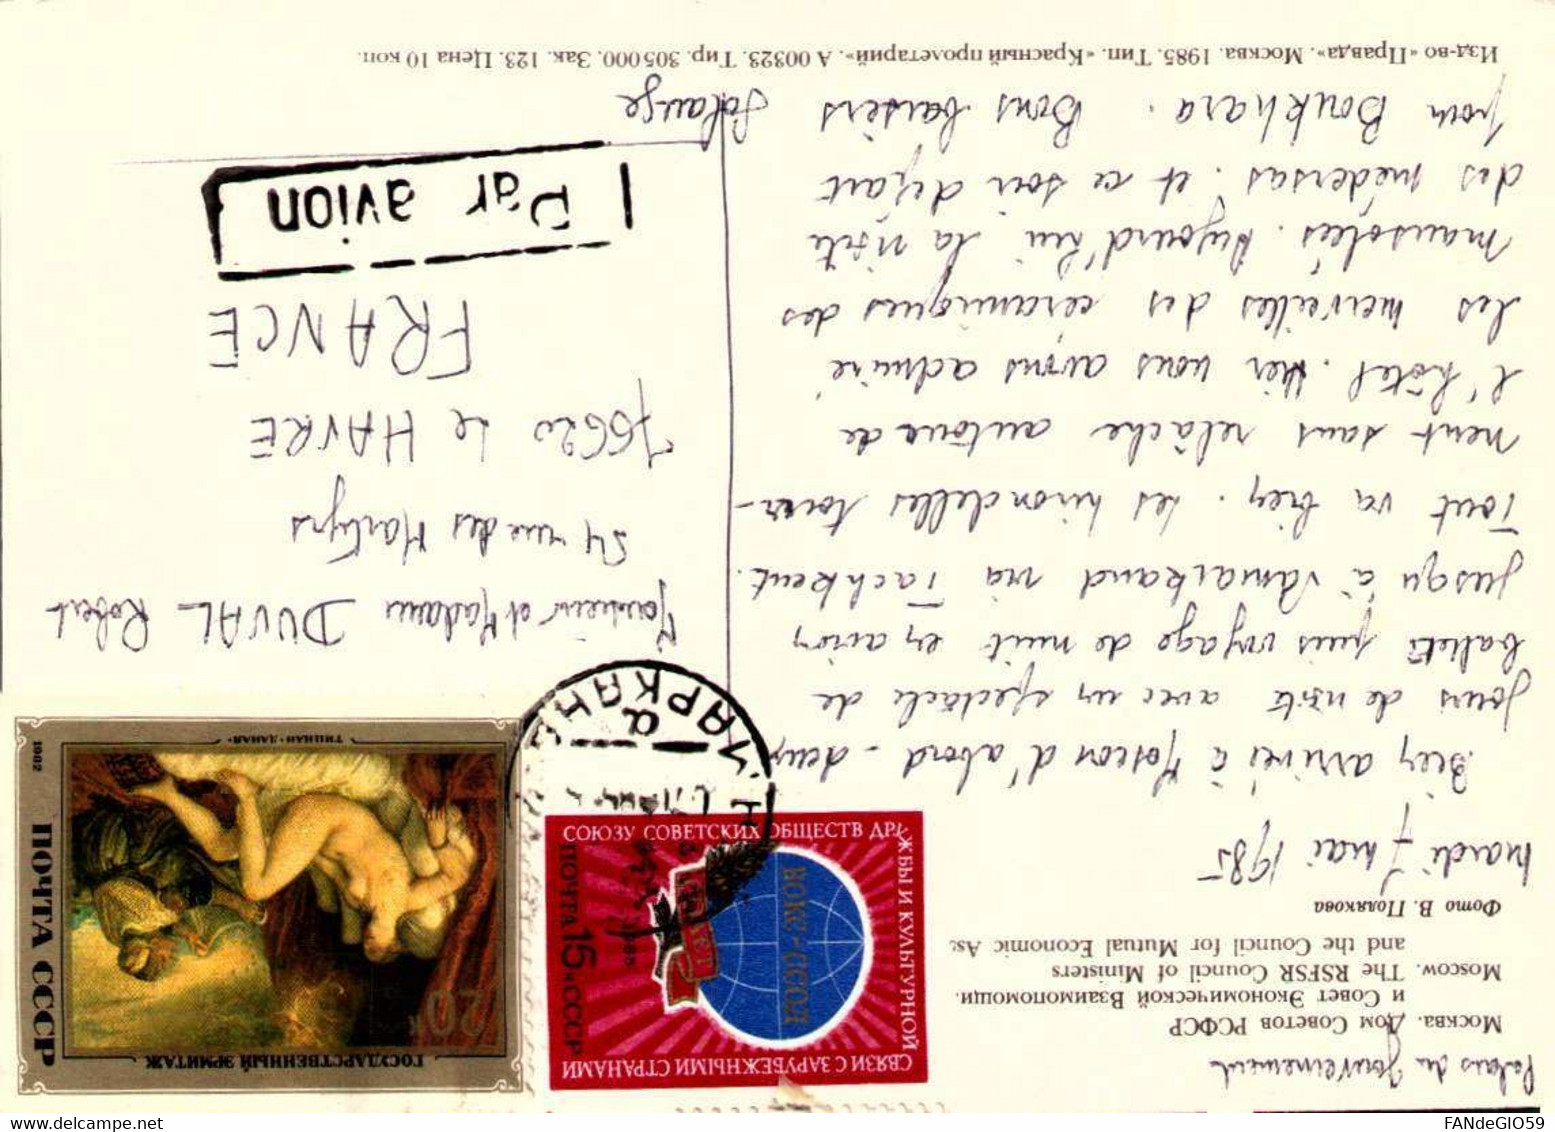 Palais du Gouvernement
Москва. Дом Советов РСФСР
и Совет Экономической Взаимопомощи.
Moscow. The RSFSR Council of Ministers
and the Council for Mutual Economic As
Фото В. Полякова
mardi 7 mai 1985
Bien arrivés à Moscou d'abord - deux
jours de visite avec un spectacle de
ballets puis voyage de nuit en avion
jusqu'à Samarkand via Tachkent.
Tout va bien. Les hirondelles tour-
nent sans relâche autour de
l'hôtel. Hier nous avons admiré
les merveilles des céramiques des
mausolées. Aujourd'hui la visite
des médersas. et ce soir départ
pour Boukhara. Bons baisers
Solange
Изд-во «Правда». Москва. 1985. Тип. «Красный пролетарий». А 00323. Тир. 305 000. Зак. 123. Цена 10 коп.
СВЯЗИ С ЗАРУБЕЖНЫМИ СТРАНАМИ
СОЮЗУ СОВЕТСКИХ ОБЩЕСТВ ДРУЖБЫ И КУЛЬТУРНОЙ
ВОКС-ССОД
ПОЧТА 15к СССР
ГОСУДАРСТВЕННЫЙ ЭРМИТАЖ
20к
ПОЧТА СССР
ТИЦИАН «ДАНАЯ»
1982
МАРКАНД
а
Monsieur et Madame DUVAL Robert
54 rue des Martyrs
76620 Le HAVRE
FRANCE
Par avion
FANdeGIO59